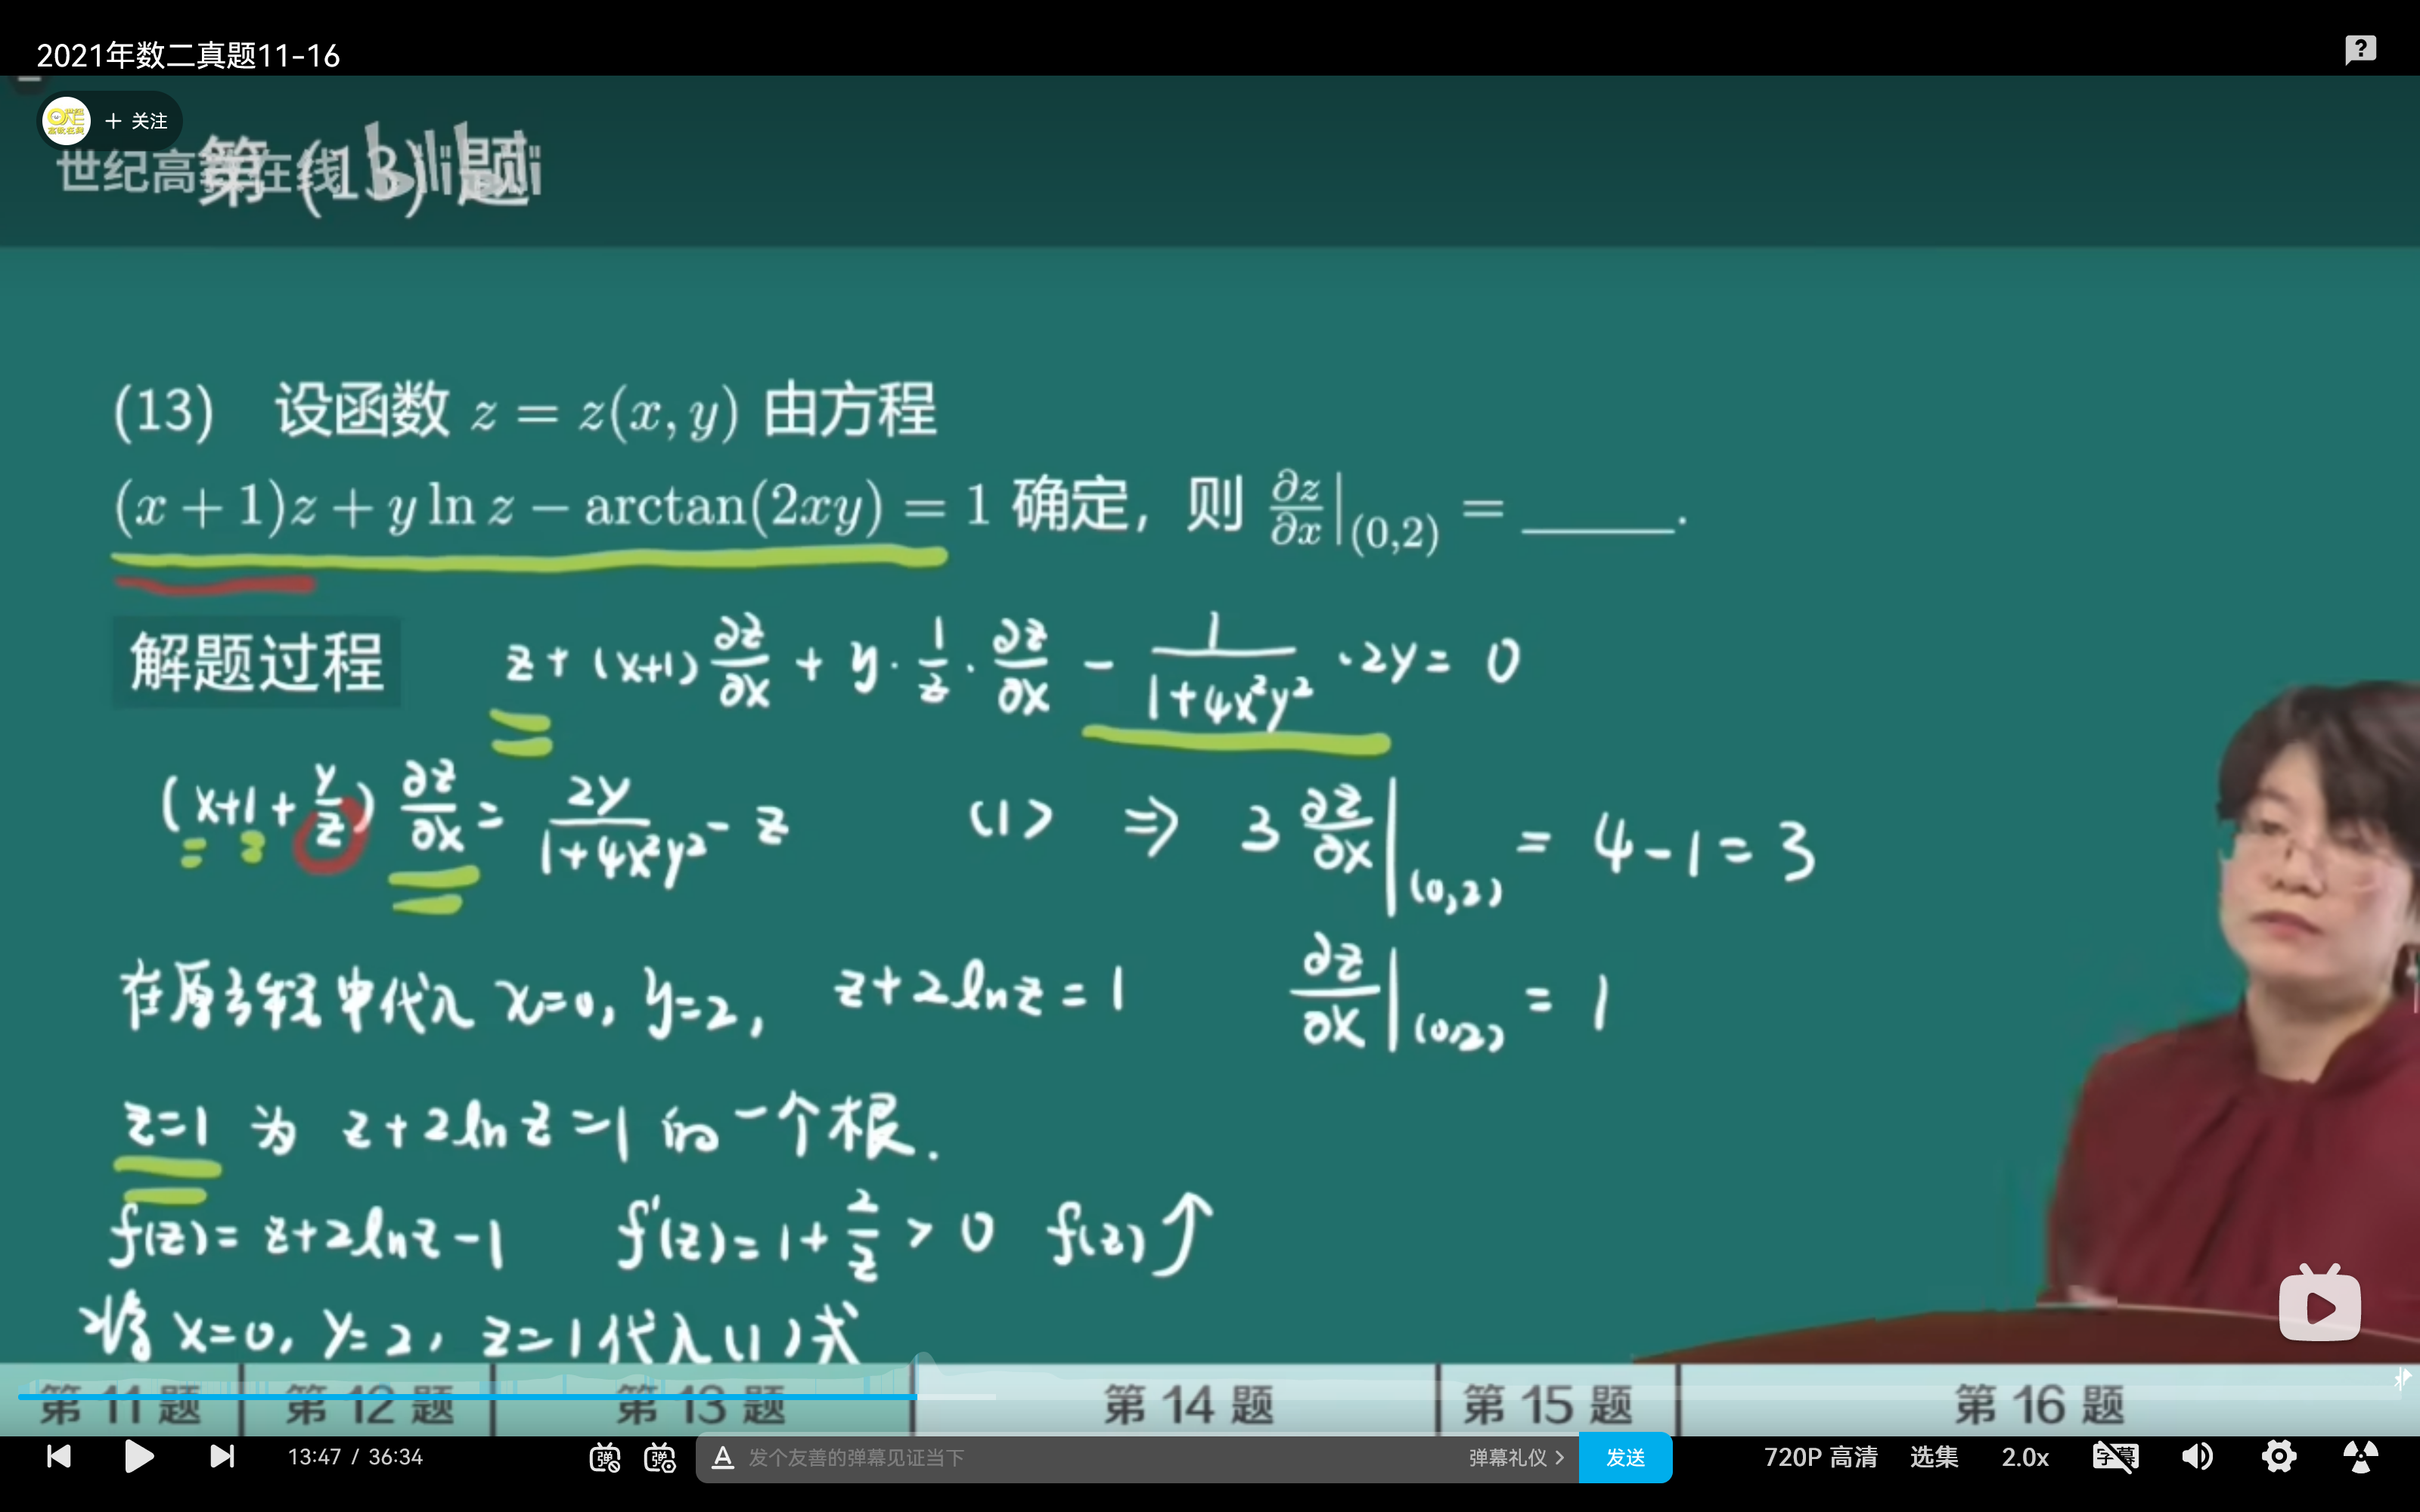 2021年数二真题11-16
+ 关注
世纪高数在线 bilibili
第 (13) 题
(13) 设函数 z = z(x, y) 由方程
(x + 1)z + y ln z − arctan(2xy) = 1 确定，则 ∂z/∂x|(0,2) = ____.
解题过程 z + (x+1) ∂z/∂x + y · 1/z · ∂z/∂x − 1/(1+4x²y²) · 2y = 0
(x+1+y/z) ∂z/∂x = 2y/(1+4x²y²) − z (1) ⇒ 3 ∂z/∂x|(0,2) = 4−1=3
在原方程中代入 x=0, y=2, z+2lnz=1 ∂z/∂x|(0,2) = 1
z=1 为 z+2lnz=1 的一个根.
f(z)= z+2lnz−1 f'(z)=1+2/z > 0 f(z)↑
将 x=0, y=2, z=1代入(1)式
第 11 题 第 12 题 第 13 题 第 14 题 第 15 题 第 16 题
13:47 / 36:34 弹 弹 A 发个友善的弹幕见证当下 弹幕礼仪 > 发送 720P 高清 选集 2.0x 字幕